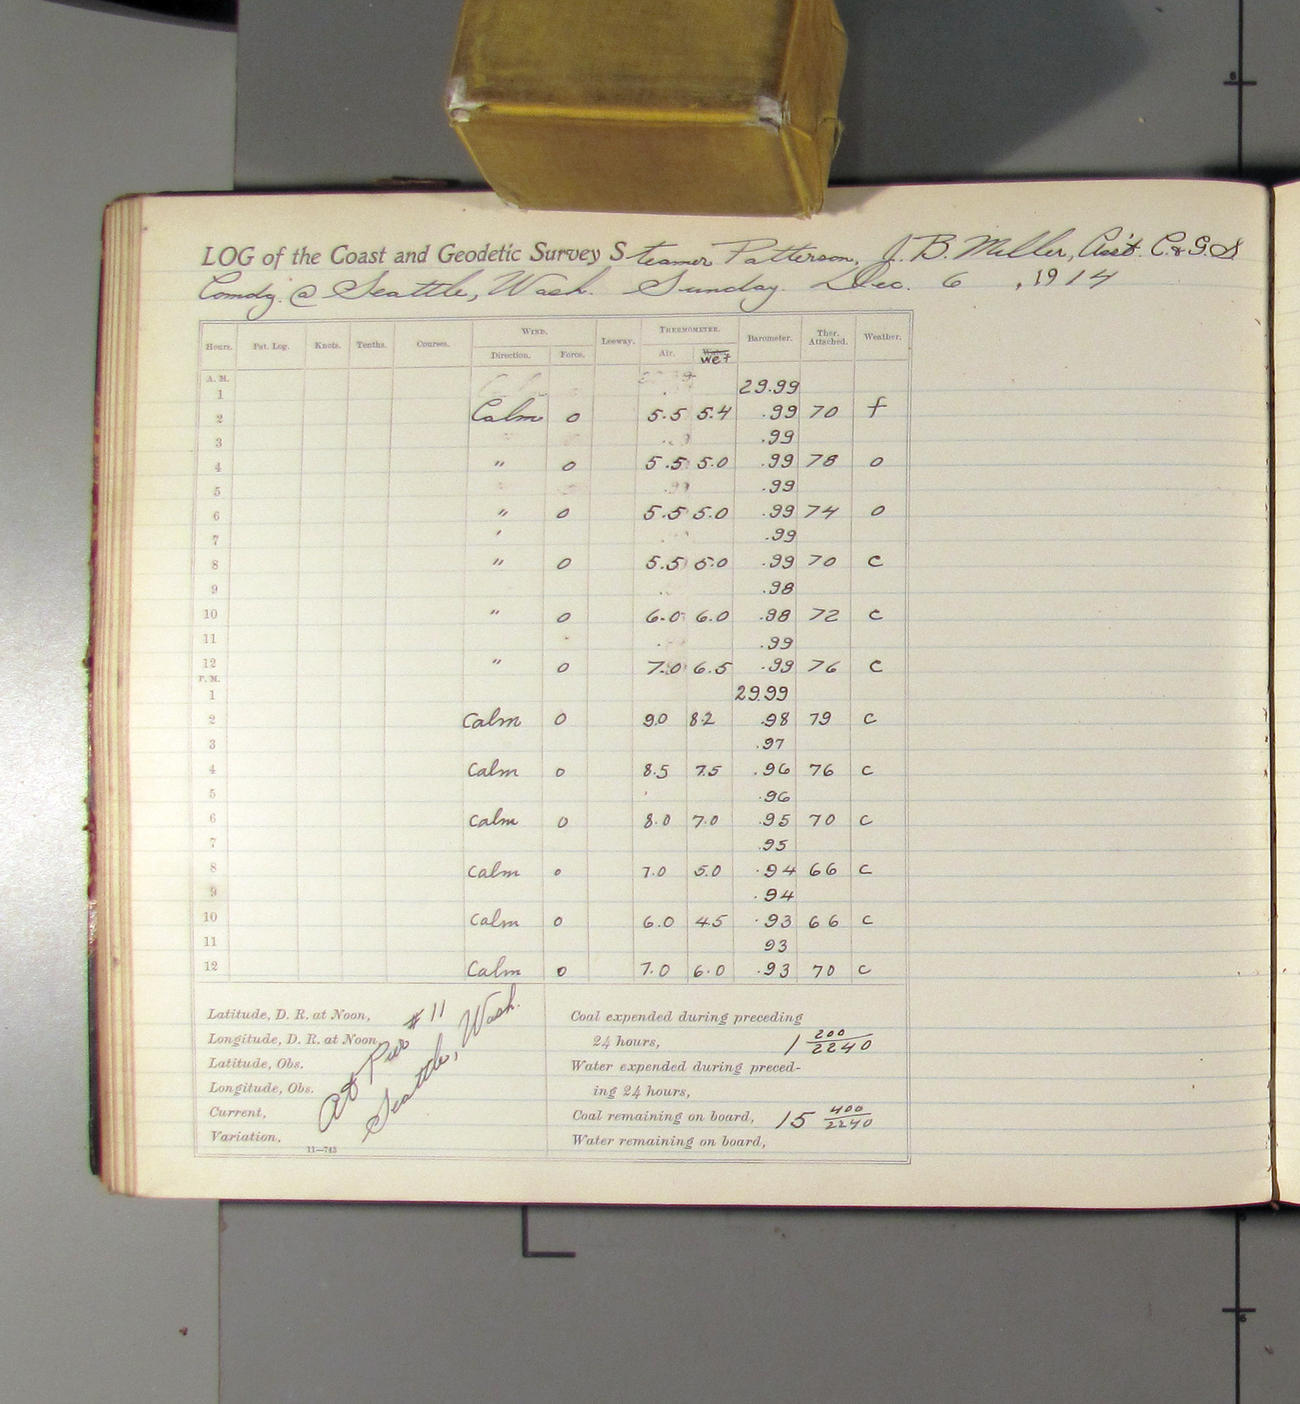 LOG of the Coast and Geodetic Survey Steamer Patterson, J. B. Miller, Ass't. C. & G. S
Comdg. @ Seattle, Wash. Sunday. Dec. 6, 1914
Hours. Pat. Log. Knots. Tenths. Courses. WIND. Direction. Force. Leeway. THERMOMETER. Air. Wet Barometer. Ther. Attached. Weather.
A. M.
1 29.99
2 Calm 0 5.5 5.4 .99 70 f
3 .99
4 " 0 5.5 5.0 .99 78 o
5 .99
6 " 0 5.5 5.0 .99 74 o
7 .99
8 " 0 5.5 5.0 .99 70 c
9 .98
10 " 0 6.0 6.0 .98 72 c
11 .99
12 " 0 7.0 6.5 .99 76 c
P. M.
1 29.99
2 Calm 0 9.0 8.2 .98 79 c
3 .97
4 Calm 0 8.5 7.5 .96 76 c
5 .96
6 Calm 0 8.0 7.0 .95 70 c
7 .95
8 Calm 0 7.0 5.0 .94 66 c
9 .94
10 Calm 0 6.0 4.5 .93 66 c
11 93
12 Calm 0 7.0 6.0 .93 70 c
Latitude, D. R. at Noon,
Longitude, D. R. at Noon,
Latitude, Obs.
Longitude, Obs.
Current,
Variation,
At Pier #11
Seattle, Wash.
11—743
Coal expended during preceding
24 hours, 1 200/2240
Water expended during preced-
ing 24 hours,
Coal remaining on board, 15 400/2240
Water remaining on board,